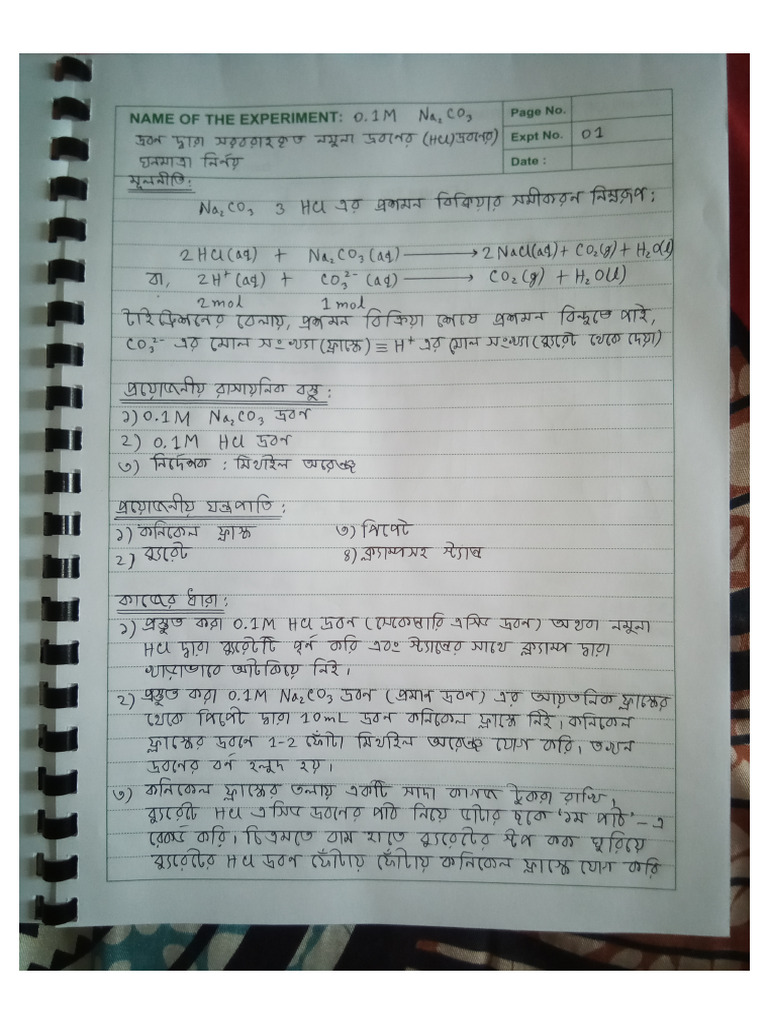 NAME OF THE EXPERIMENT: 0.1M Na₂CO₃
Page No.
দ্রবন দ্বারা সরবরাহকৃত নমুনা দ্রবণের (HCl দ্রবণের)
Expt No. 01
ঘনমাত্রা নির্নয়
Date :
মূলনীতি:
Na₂CO₃ ও HCl এর প্রশমন বিক্রিয়ার সমীকরন নিম্নরূপ:
2HCl(aq) + Na₂CO₃(aq) ⟶ 2NaCl(aq) + CO₂(g) + H₂O(l)
বা, 2H⁺(aq) + CO₃²⁻ (aq) ⟶ CO₂(g) + H₂O(l)
2 mol 1 mol
টাইট্রেশনের বেলায়, প্রশমন বিক্রিয়া শেষে প্রশমন বিন্দুতে পাই,
CO₃²⁻ এর মোল সংখ্যা (ফ্লাস্কে) ≡ H⁺ এর মোল সংখ্যা (ব্যুরেট থেকে দেয়া)
প্রয়োজনীয় রাসায়নিক বস্তু:
১) 0.1M Na₂CO₃ দ্রবন
২) 0.1M HCl দ্রবন
৩) নির্দেশক : মিথাইল অরেঞ্জ
প্রয়োজনীয় যন্ত্রপাতি:
১) কনিকেল ফ্লাস্ক ৩) পিপেট
২) ব্যুরেট ৪) ক্ল্যাম্পসহ স্ট্যান্ড
কাজের ধারা:
১) প্রস্তুত করা 0.1M HCl দ্রবন (সেকেন্ডারি এসিড দ্রবন) অথবা নমুনা
HCl দ্বারা ব্যুরেটটি পূর্ন করি এবং স্ট্যান্ডের সাথে ক্ল্যাম্প দ্বারা
খাড়াভাবে আটকিয়ে নিই।
২) প্রস্তুত করা 0.1M Na₂CO₃ দ্রবন (প্রমান দ্রবন) এর আয়তনিক ফ্লাস্কের
থেকে পিপেট দ্বারা 10mL দ্রবন কনিকেল ফ্লাস্কে নিই। কনিকেল
ফ্লাস্কের দ্রবনে 1-2 ফোঁটা মিথাইল অরেঞ্জ যোগ করি। তখন
দ্রবনের বর্ন হলুদ হয়।
৩) কনিকেল ফ্লাস্কের তলায় একটি সাদা কাগজ টুকরা রাখি,
ব্যুরেট HCl এসিড দ্রবনের পাঠ নিয়ে ডাটার ছকে '১ম পাঠ'-এ
রেকর্ড করি। চিত্রমতে বাম হাতে ব্যুরেটের স্টপ কক ঘুরিয়ে
ব্যুরেটের HCl দ্রবন ফোঁটায় ফোঁটায় কনিকেল ফ্লাস্কে যোগ করি